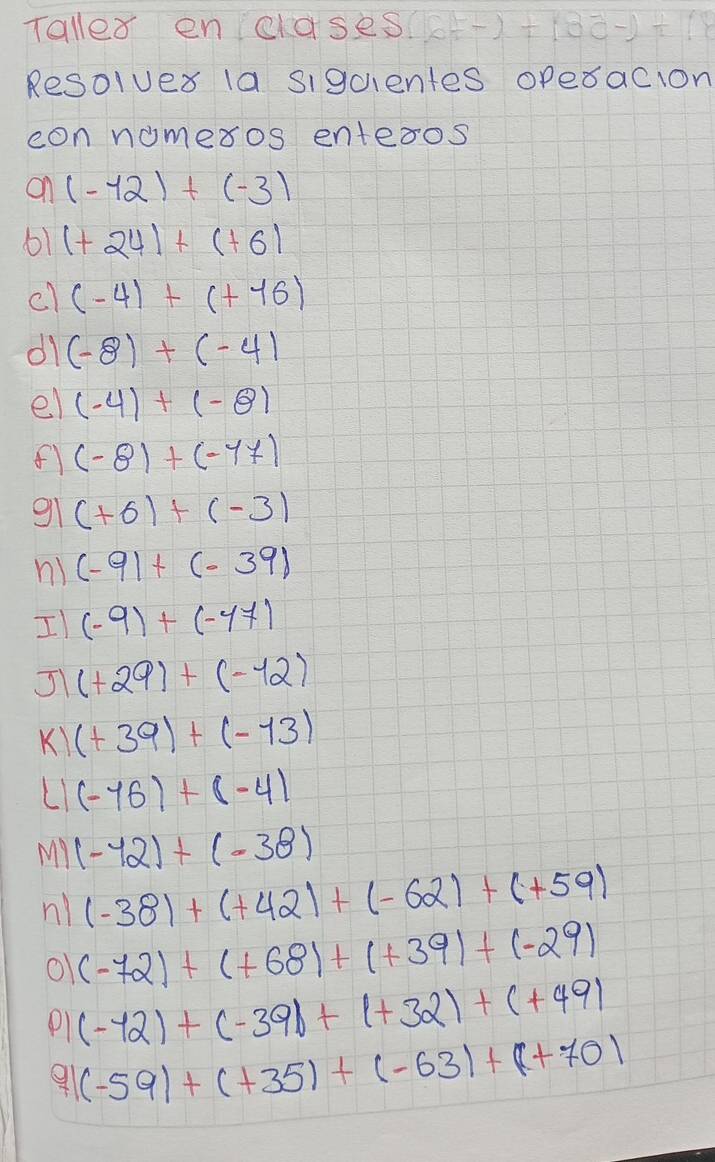 Taller en clases
Resolver la siguientes operacion
con números enteros
a) (-12) + (-3)
b) (+24) + (+6)
c) (-4) + (+16)
d) (-8) + (-4)
e) (-4) + (-8)
f) (-8) + (-17)
g) (+6) + (-3)
h) (-9) + (-39)
I) (-9) + (-17)
J) (+29) + (-12)
K) (+39) + (-13)
L) (-16) + (-4)
M) (-12) + (-38)
n) (-38) + (+42) + (-62) + (+59)
o) (-72) + (+68) + (+39) + (-29)
p) (-12) + (-39) + (+32) + (+49)
q) (-59) + (+35) + (-63) + (+70)